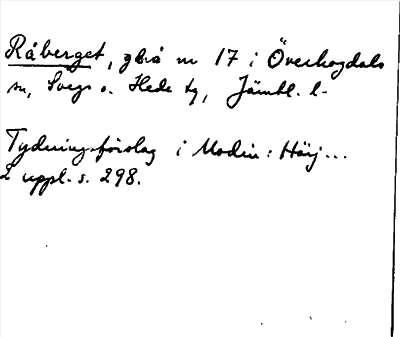 Råberget, gbrå nr 17 i Överhogdals
sn, Svegs o. Hede tg, Jämtl. l.
Tydningsförslag i Modin: Härj...
2 uppl. s. 298.